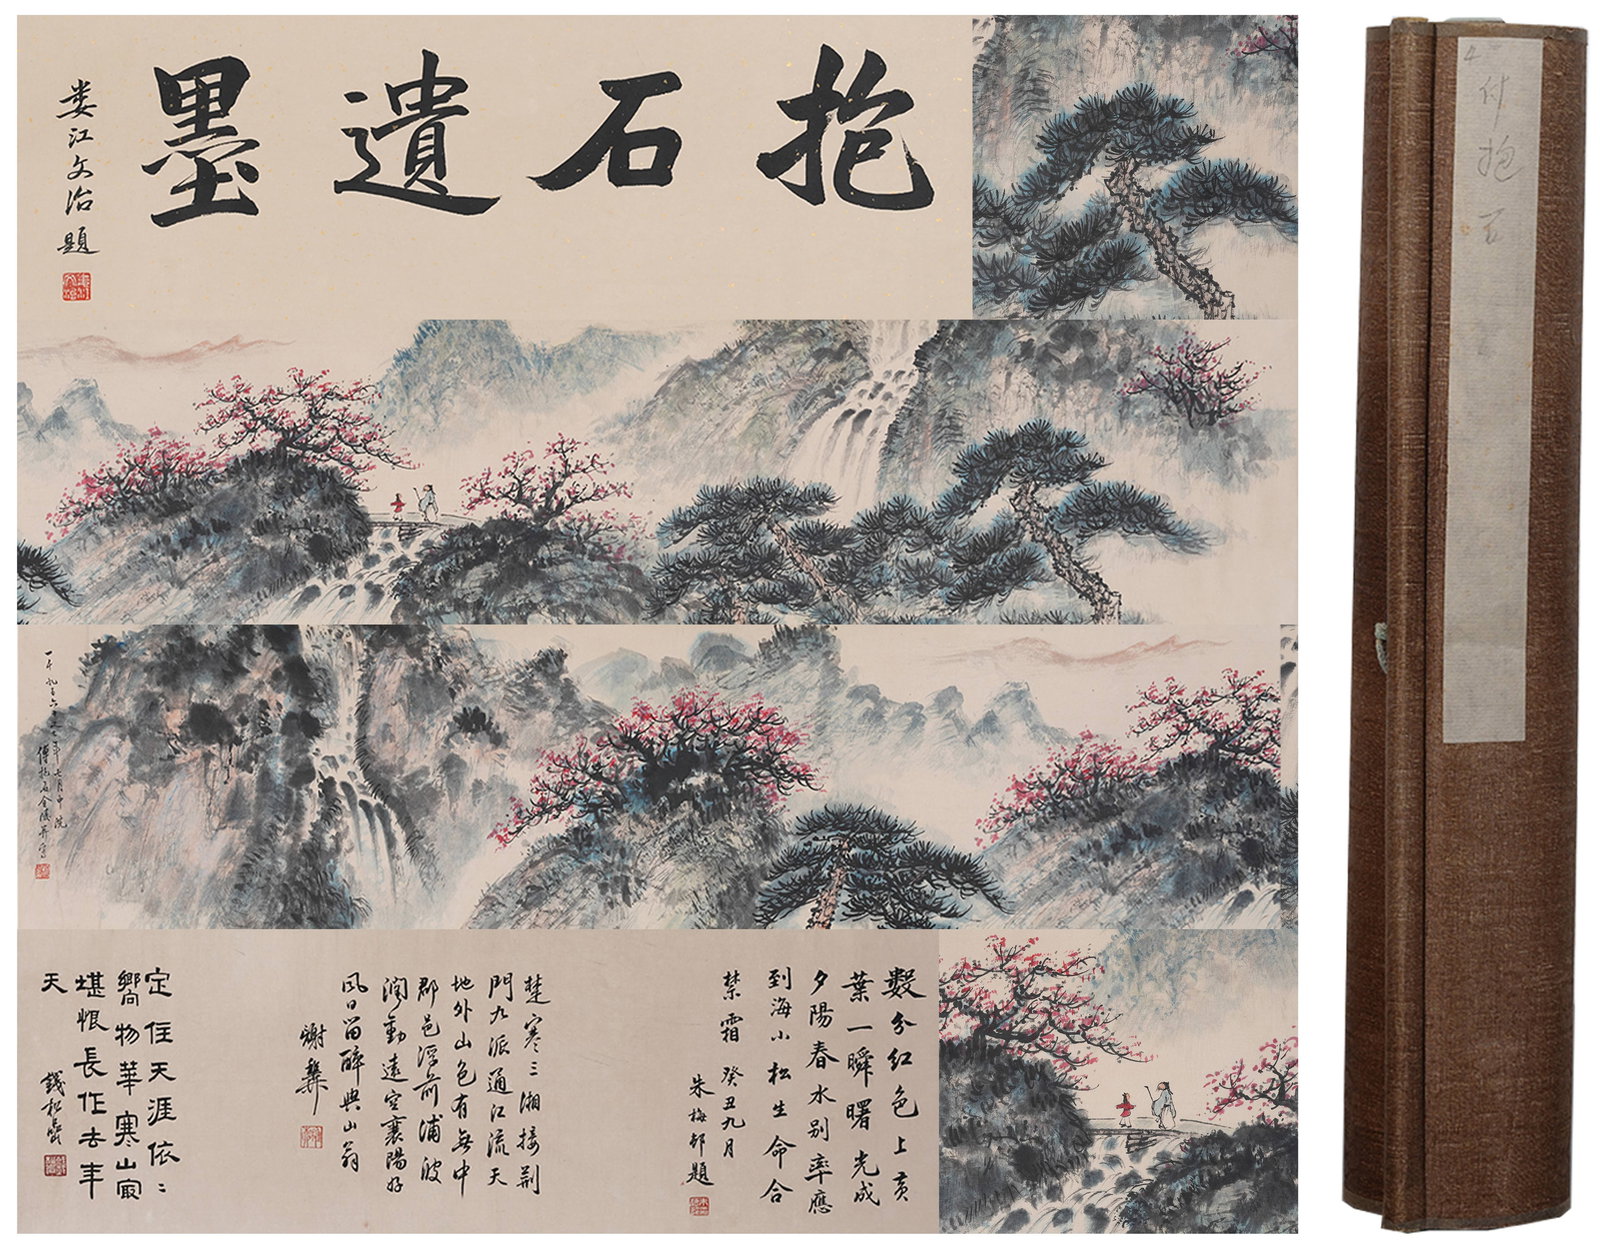 抱石遺墨
娄江文治題
付抱
七月中浣
傅抱石金陵
數分紅色上黃
葉一瞬曙光成
夕陽春水別率應
到海小松生命合
禁霜 癸丑九月
朱梅邨題
楚寒三湘接荆
門九派通江流天
地外山色有無中
郡邑浮前浦波
潤動遠空襄陽好
風日留醉與山翁
謝
定住天涯依〻
嚮物華寒山㝡
堪恨長作去年
天
錢松喦